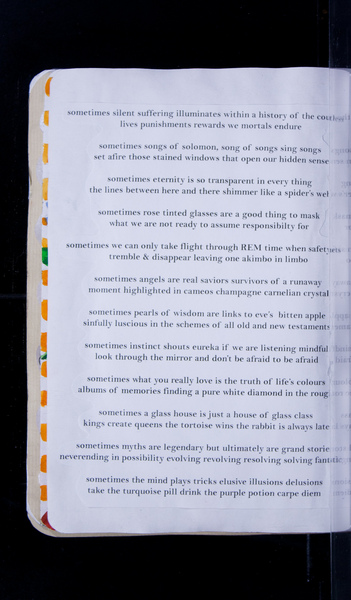 sometimes silent suffering illuminates within a history of the
lives punishments rewards we mortals endure
sometimes songs of solomon, song of songs sing songs
set afire those stained windows that open our hidden sense
sometimes eternity is so transparent in every thing
the lines between here and there shimmer like a spider's
sometimes rose tinted glasses are a good thing to mask
what we are not ready to assume responsibilty for
sometimes we can only take flight through REM time when
tremble & disappear leaving one akimbo in limbo
sometimes angels are real saviors survivors of a runaway
moment highlighted in cameos champagne carnelian crystal
sometimes pearls of wisdom are links to eve's bitten apple
sinfully luscious in the schemes of all old and new testaments
sometimes instinct shouts eureka if we are listening mindful
look through the mirror and don't be afraid to be afraid
sometimes what you really love is the truth of life's colours
albums of memories finding a pure white diamond in the
sometimes a glass house is just a house of glass class
kings create queens the tortoise wins the rabbit is always late
sometimes myths are legendary but ultimately are grand
neverending in possibility evolving revolving resolving solving
sometimes the mind plays tricks elusive illusions delusions
take the turquoise pill drink the purple potion carpe diem